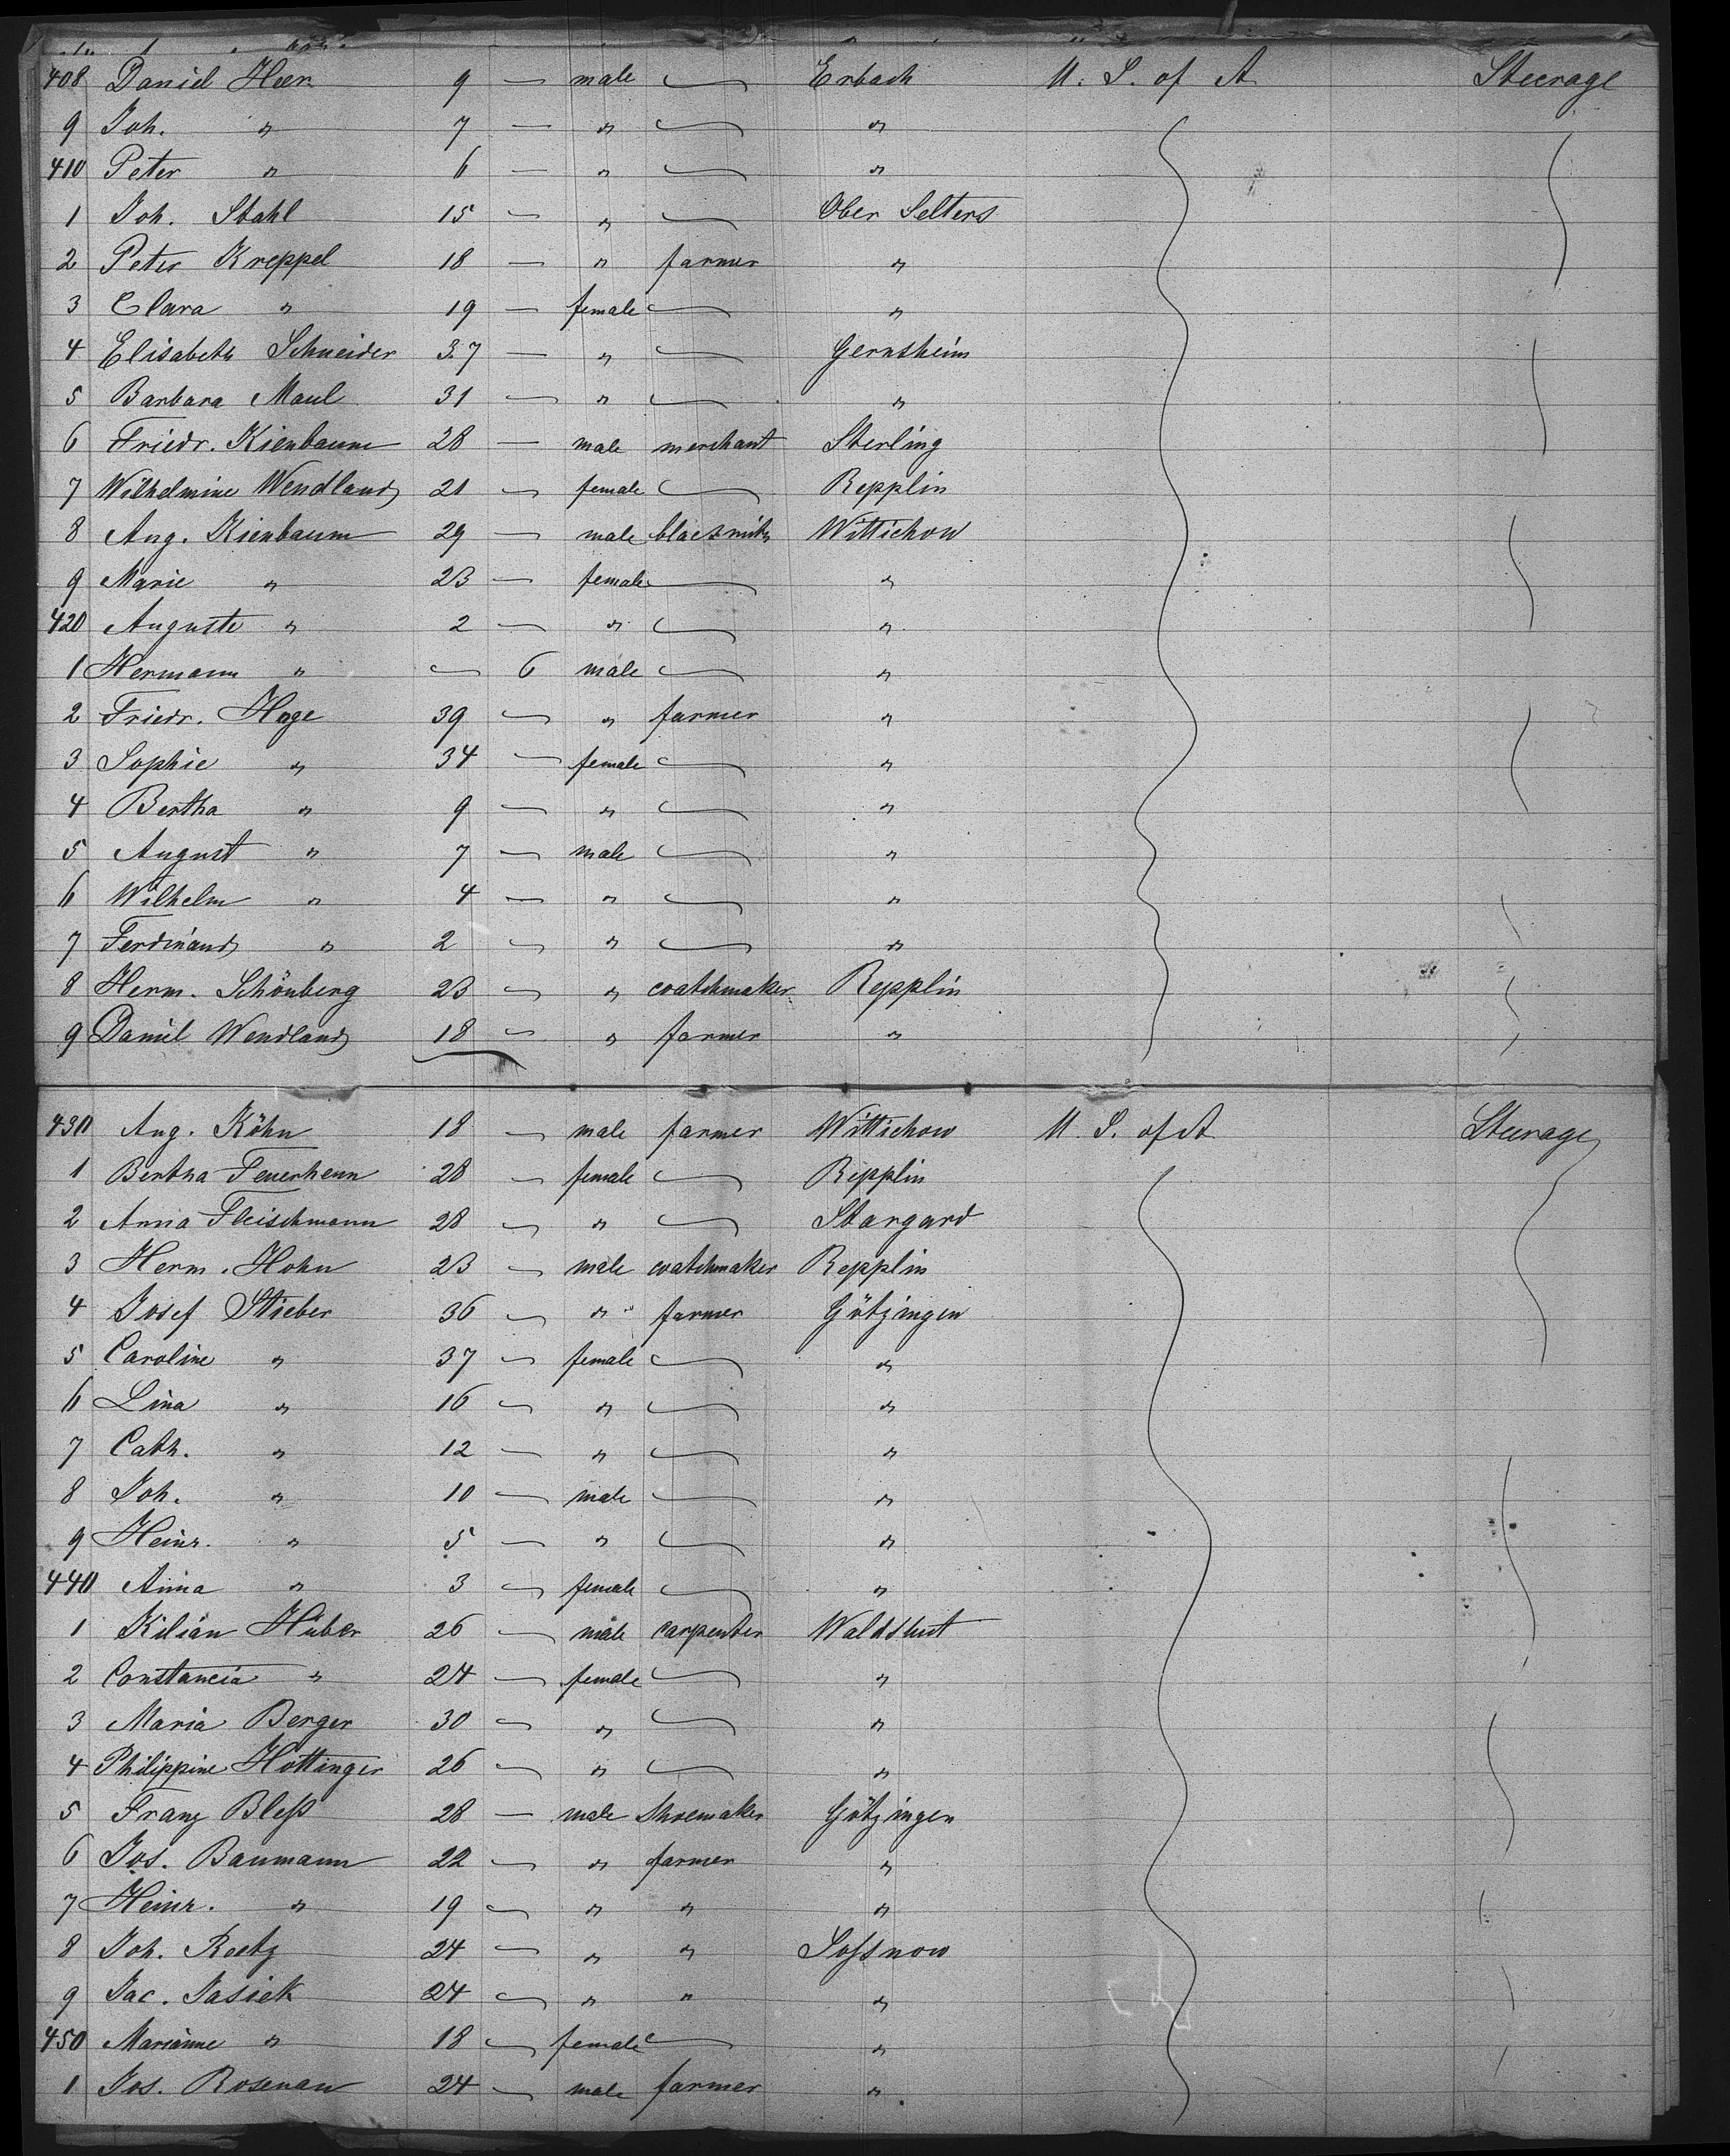 408 Daniel Heer 9 — male — Erbach U. S. of A Steerage
9 Joh. " 7 — " — "
410 Peter " 6 — " — "
1 Joh. Stahl 15 — " — Ober Selters
2 Peter Kreppel 18 — " farmer "
3 Clara " 19 — female — "
4 Elisabeth Schneider 37 — " — Gernsheim
5 Barbara Maul 31 — " — "
6 Friedr. Kienbaum 28 — male merchant Sterling
7 Wilhelmine Wendland 21 — female — Repplin
8 Aug. Kienbaum 29 — male blacksmith Wittichow
9 Marie " 23 — female — "
420 Auguste " 2 — " — "
1 Hermann " — 6 male — "
2 Friedr. Hage 39 — " farmer "
3 Sophie " 34 — female — "
4 Bertha " 9 — " — "
5 August " 7 — male — "
6 Wilhelm " 4 — " — "
7 Ferdinand " 2 — " — "
8 Herm. Schönberg 23 — " coatchmaker Repplin
9 Daniel Wendland 18 — " farmer "
430 Aug. Köhn 18 — male farmer Wittichow U. S. of A Steerage
1 Bertha Feuerhenn 28 — female — Repplin
2 Anna Fleischmann 28 — " — Stargard
3 Herm. Hohn 23 — male coatchmaker Repplin
4 Josef Stieber 36 — " farmer Götzingen
5 Caroline " 37 — female — "
6 Lina " 16 — " — "
7 Cath. " 12 — " — "
8 Joh. " 10 — male — "
9 Heinr. " 5 — " — "
440 Anna " 3 — female — "
1 Kilian Huber 26 — male carpenter Waldshut
2 Constancia " 24 — female — "
3 Maria Berger 30 — " — "
4 Philippine Hottinger 26 — " — "
5 Franz Bleß 28 — male Shoemaker Götzingen
6 Jos. Baumann 22 — " farmer "
7 Heinr. " 19 — " " "
8 Joh. Reetz 24 — " " Soßnow
9 Jac. Jasiek 24 — " " "
450 Marianne " 18 — female — "
1 Jos. Rosenau 24 — male farmer "